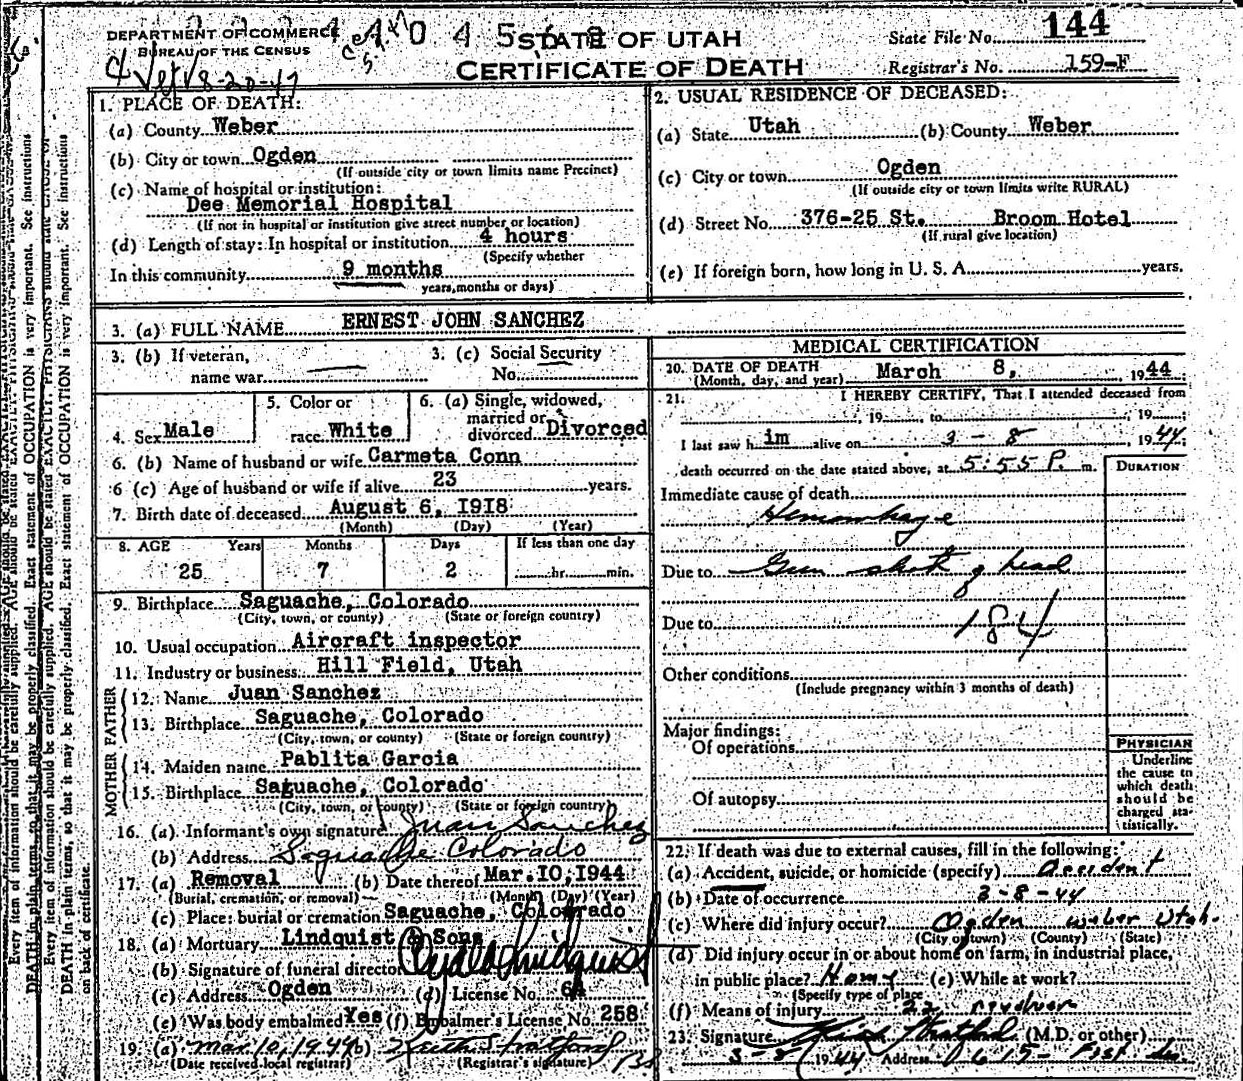 DEPARTMENT OF COMMERCE
BUREAU OF THE CENSUS
8-20-47
0 4 5
STATE OF UTAH
CERTIFICATE OF DEATH
State File No. 144
Registrar's No. 159-F
1. PLACE OF DEATH:
(a) County Weber
(b) City or town Ogden
(If outside city or town limits name Precinct)
(c) Name of hospital or institution:
Dee Memorial Hospital
(If not in hospital or institution give street number or location)
(d) Length of stay: In hospital or institution 4 hours
(Specify whether
In this community 9 months
years, months or days)
2. USUAL RESIDENCE OF DECEASED:
(a) State Utah (b) County Weber
(c) City or town Ogden
(If outside city or town limits write RURAL)
(d) Street No. 376-25 St. Broom Hotel
(If rural give location)
(e) If foreign born, how long in U. S. A. years.
3. (a) FULL NAME ERNEST JOHN SANCHEZ
3. (b) If veteran,
name war
3. (c) Social Security
No.
4. Sex Male
5. Color or
race White
6. (a) Single, widowed,
married or
divorced Divorced
6. (b) Name of husband or wife Carmeta Conn
6 (c) Age of husband or wife if alive 23 years.
7. Birth date of deceased August 6, 1918
(Month) (Day) (Year)
8. AGE Years Months Days If less than one day
25 7 2 hr. min.
9. Birthplace Saguache, Colorado
(City, town, or county) (State or foreign country)
10. Usual occupation Aircraft inspector
11. Industry or business Hill Field, Utah
FATHER
12. Name Juan Sanchez
13. Birthplace Saguache, Colorado
(City, town, or county) (State or foreign country)
MOTHER
14. Maiden name Pablita Garcia
15. Birthplace Saguache, Colorado
(City, town, or county) (State or foreign country)
16. (a) Informant's own signature Juan Sanchez
(b) Address Saguache Colorado
17. (a) Removal (b) Date thereof Mar. 10, 1944
(Burial, cremation, or removal) (Month) (Day) (Year)
(c) Place: burial or cremation Saguache, Colorado
18. (a) Mortuary Lindquist & Sons
(b) Signature of funeral director
(c) Address Ogden (d) License No. 64
(e) Was body embalmed Yes (f) Embalmer's License No. 258
19. (a) Mar 10, 1944 (b)
(Date received local registrar) (Registrar's signature)
MEDICAL CERTIFICATION
20. DATE OF DEATH
(Month, day, and year) March 8, 1944
21. I HEREBY CERTIFY, That I attended deceased from
, 19 to , 19 ;
I last saw h im alive on 3 - 8 , 1944;
death occurred on the date stated above, at 5:55 P. m.
DURATION
Immediate cause of death
Hemorrhage
Due to Gun shot of head
Due to 184
Other conditions
(Include pregnancy within 3 months of death)
Major findings:
Of operations
Of autopsy
PHYSICIAN
Underline
the cause to
which death
should be
charged sta-
tistically.
22. If death was due to external causes, fill in the following:
(a) Accident, suicide, or homicide (specify) Accident
(b) Date of occurrence 3-8-44
(c) Where did injury occur? Ogden Weber Utah.
(City or town) (County) (State)
(d) Did injury occur in or about home on farm, in industrial place,
in public place? Home (e) While at work?
(Specify type of place
(f) Means of injury 22 revolver
23. Signature (M.D. or other)
3-8 1944 Address
Every item of information should be carefully supplied. AGE should be stated EXACTLY. PHYSICIANS should state CAUSE OF
DEATH in plain terms, so that it may be properly classified. Exact statement of OCCUPATION is very important. See instructions
on back of certificate.